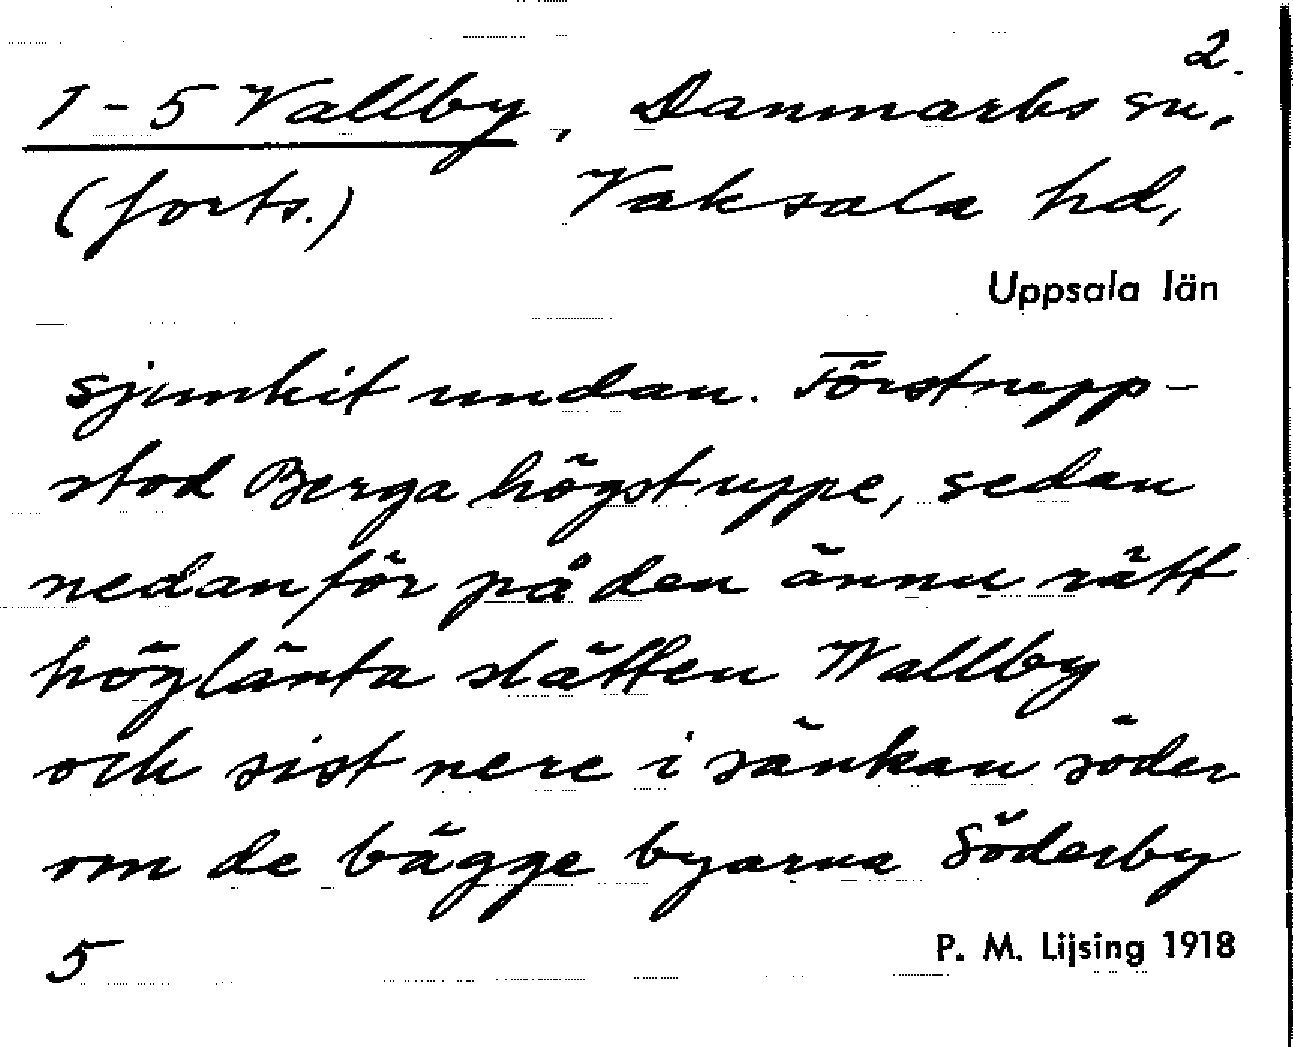 2.
1-5 Vallby, Danmarks sn,
(forts.) Vaksala hd,
Uppsala län
sjunkit undan. Först upp-
stod Berga högst uppe, sedan
nedanför på den ännu rätt
höglänta slätten Vallby
och sist nere i sänkan söder
om de bägge byarna Söderby
5
P. M. Lijsing 1918